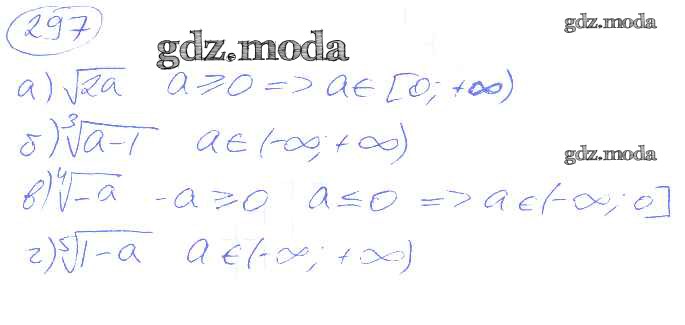 297
gdz.moda
gdz.moda
а) √2a a ≥ 0 => a ∈ [0; +∞)
б) ∛(a-1) a ∈ (-∞; +∞)
gdz.moda
в) ∜(-a) -a ≥ 0 a ≤ 0 => a ∈ (-∞; 0]
г) ⁵√(1-a) a ∈ (-∞; +∞)